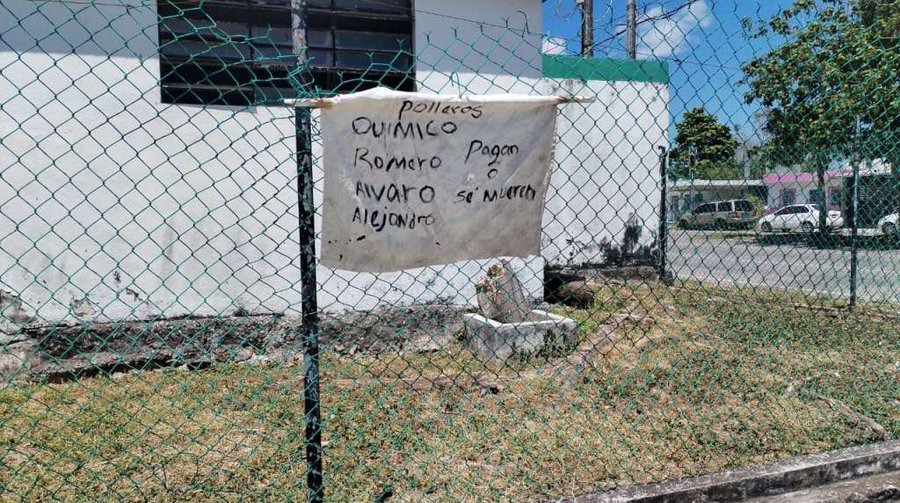 Polleros
QUIMICO
Romero
Alvaro
Alejandro
Pagan
o
se mueren